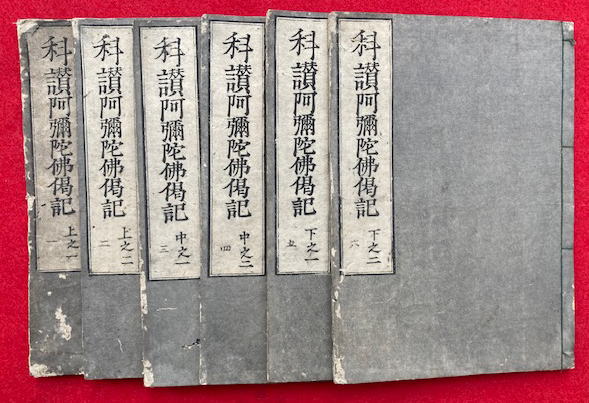 科讃阿彌陀佛偈記 上之一
一
科讃阿彌陀佛偈記 上之二
二
科讃阿彌陀佛偈記 中之一
三
科讃阿彌陀佛偈記 中之二
四
科讃阿彌陀佛偈記 下之一
五
科讃阿彌陀佛偈記 下之二
六